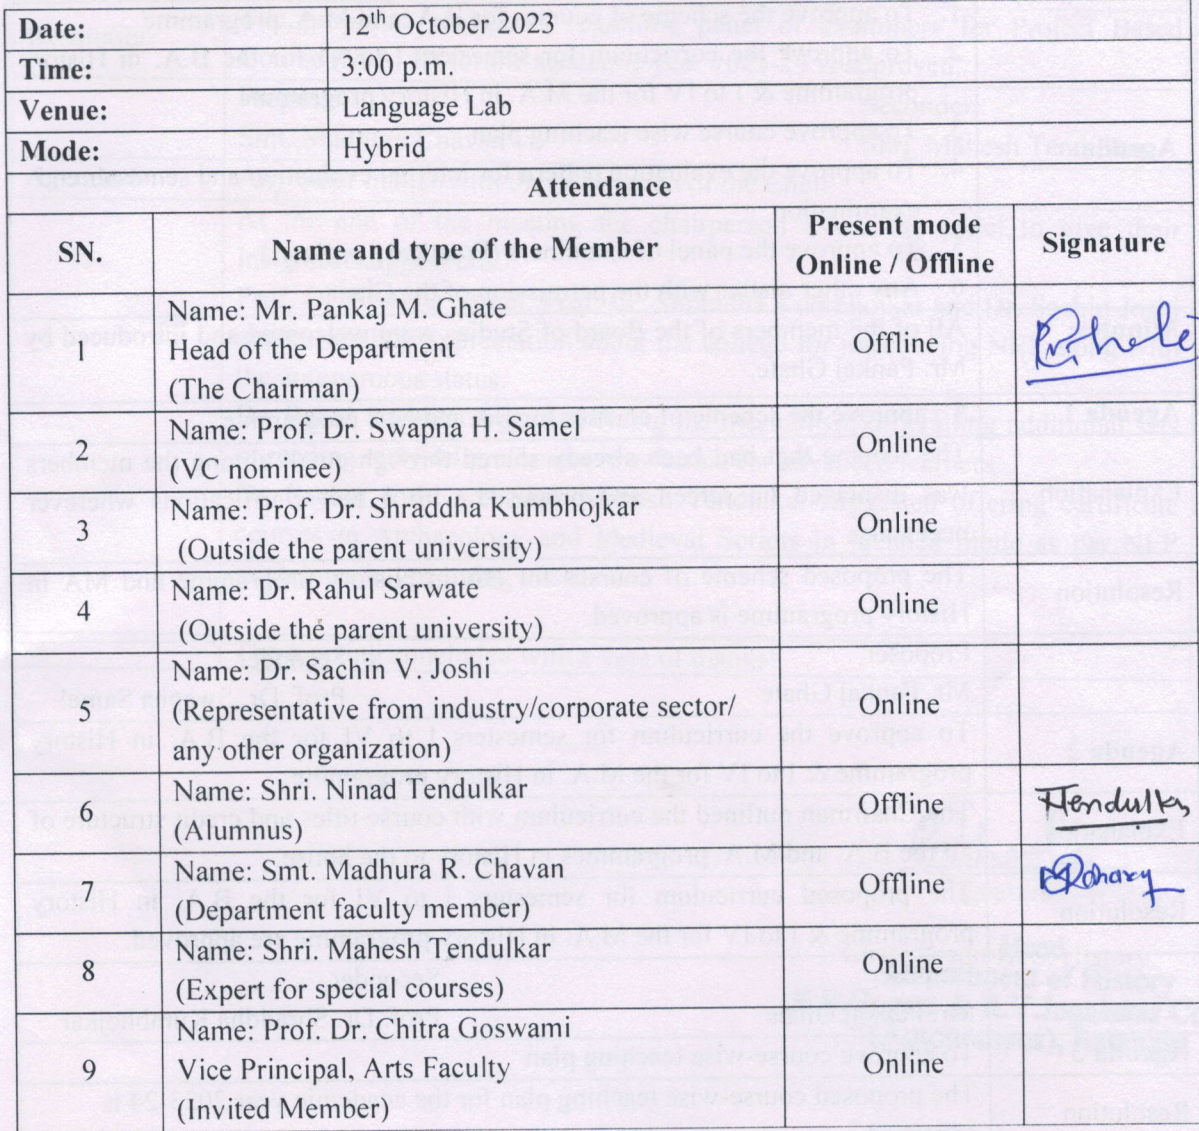 Date: 12th October 2023
Time: 3:00 p.m.
Venue: Language Lab
Mode: Hybrid
Attendance
SN. Name and type of the Member Present mode Online / Offline Signature
1 Name: Mr. Pankaj M. Ghate
Head of the Department Offline
(The Chairman)
2 Name: Prof. Dr. Swapna H. Samel Online
(VC nominee)
3 Name: Prof. Dr. Shraddha Kumbhojkar Online
(Outside the parent university)
4 Name: Dr. Rahul Sarwate Online
(Outside the parent university)
5 Name: Dr. Sachin V. Joshi
(Representative from industry/corporate sector/ Online
any other organization)
6 Name: Shri. Ninad Tendulkar Offline Tendulkar
(Alumnus)
7 Name: Smt. Madhura R. Chavan Offline
(Department faculty member)
8 Name: Shri. Mahesh Tendulkar Online
(Expert for special courses)
9 Name: Prof. Dr. Chitra Goswami
Vice Principal, Arts Faculty Online
(Invited Member)